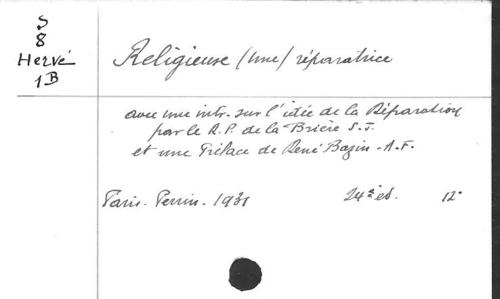 S
8
Hervé
1B
Religieuse (Une) réparatrice
avec une intr. sur l'idée de la Réparation
par le R.P. de la Brière S.J.
et une Préface de René Bazin - A.F.
Paris. Perrin. 1931 24e éd. 12°